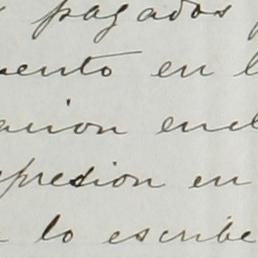 y pagados
ento en l
ación en el
presion en
lo escribe